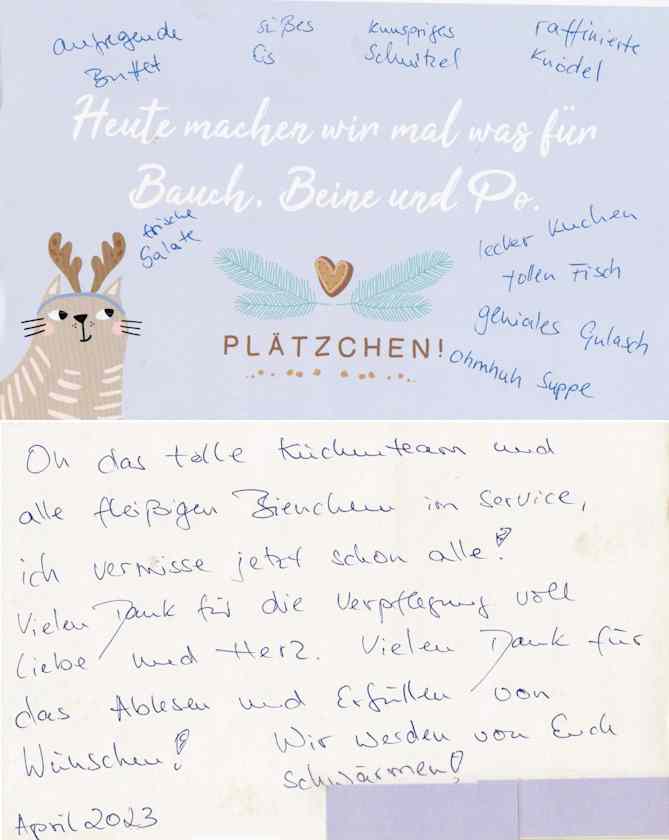 aufregende
Buffet
süßes
Eis
knuspriges
Schnitzel
raffinierte
Knödel
Heute machen wir mal was für
Bauch, Beine und Po.
frische
Salate
lecker Kuchen
tollen Fisch
geniales Gulasch
Ohmhuh Suppe
PLÄTZCHEN!
An das tolle Küchenteam und
alle fleißigen Bienchen im Service,
ich vermisse jetzt schon alle!
Vielen Dank für die Verpflegung voll
Liebe und Herz. Vielen Dank für
das Ablesen und Erfüllen von
Wünschen! Wir werden von Euch
schwärmen!
April 2023